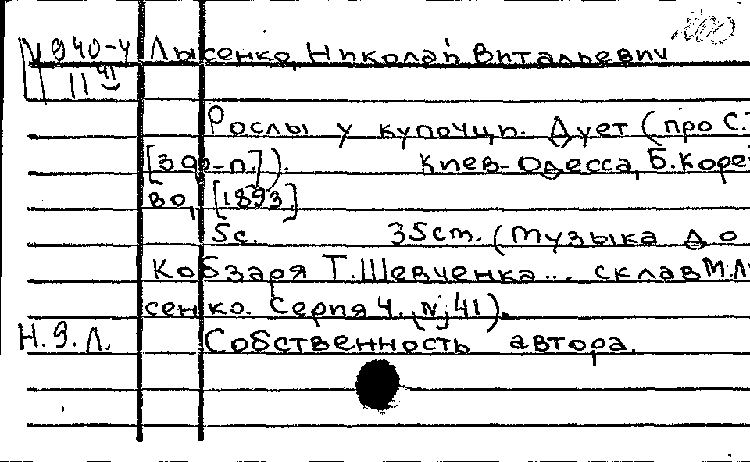 М 940-4 Лысенко, Николай Витальевич
11 41
Рослы у купочци. Дует (про С.
[з ор-п.]). Киев-Одесса, Б. Коре
во, [1893]
5с. 35cm. (Музыка до
Кобзаря Т. Шевченка... склав М. Лы
сенко. Серия 4. №41).
Н. Э. Л. Собственность автора.